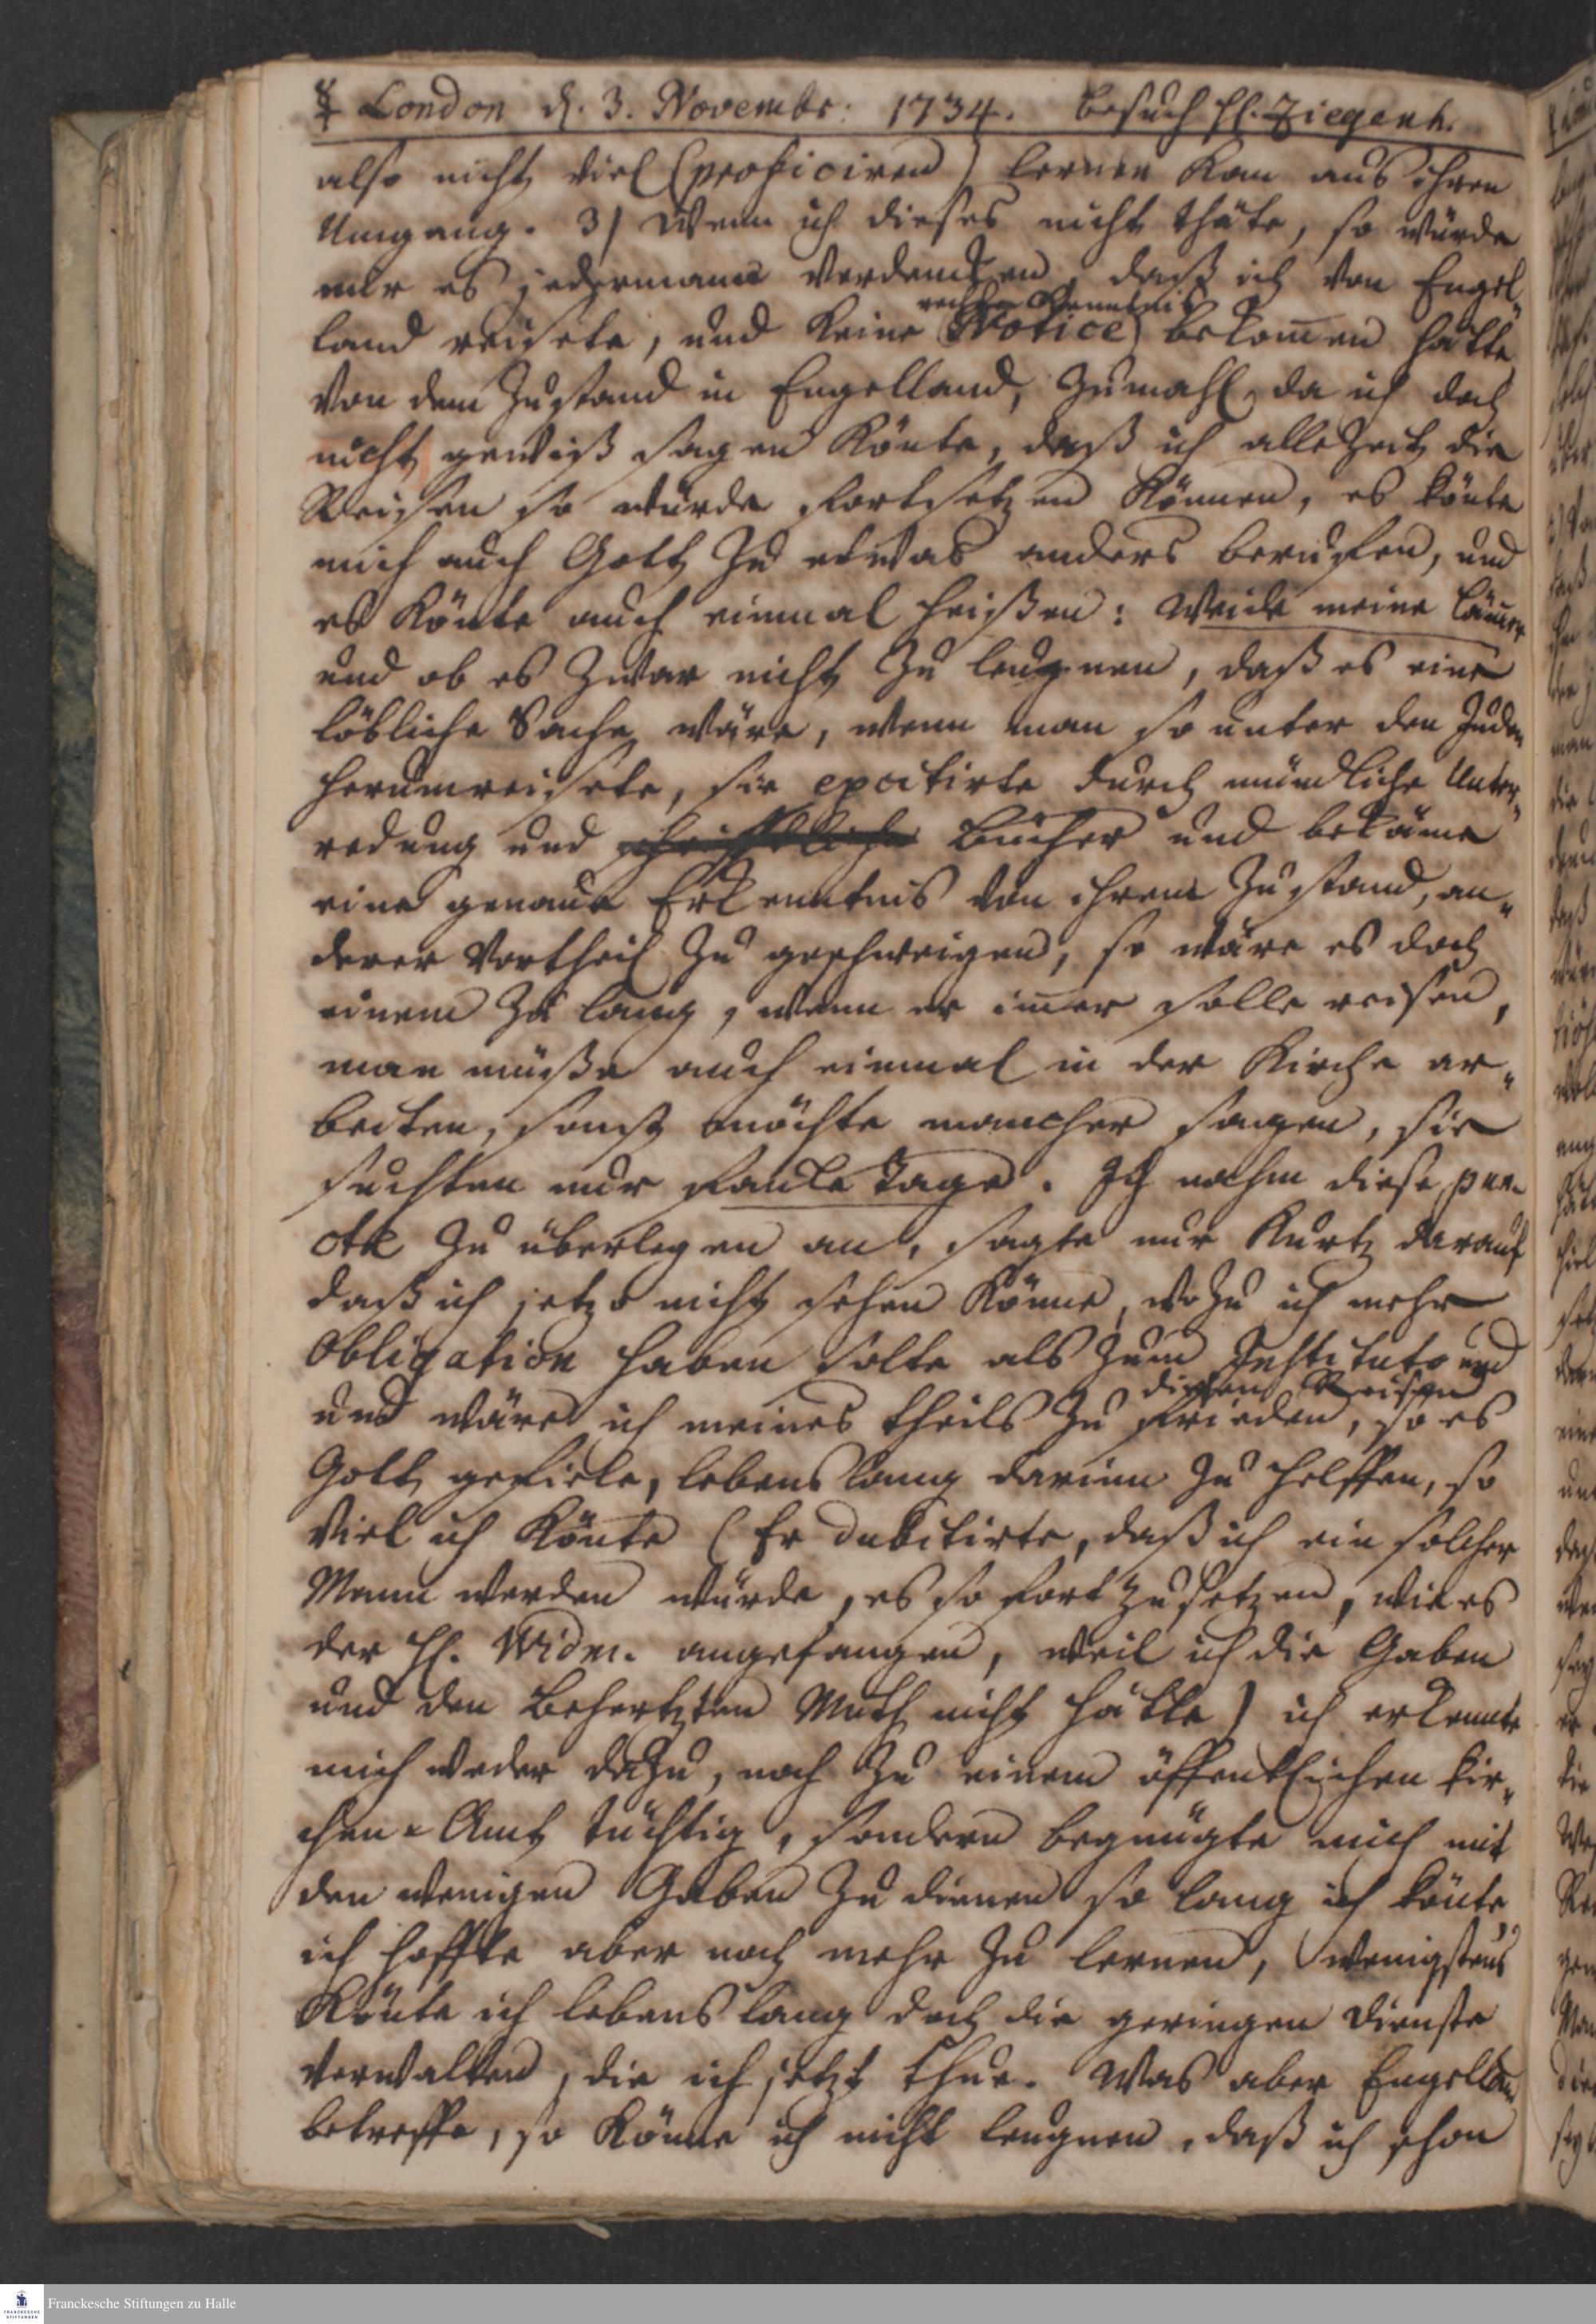 ☿ London d. 3. Novembr: 1734. Besuch H. Ziegenh.
also nicht viel (proficiren) lernen kan aus ihren
Umgang. 3) Wenn ich dieses nicht thäte, so würde
mir es jedermann verdencken, daß ich von Engel„
rechte Kenntnis
land reisete, und keine (Notice) bekom̄en hätte
von dem Zustand in Engelland, zumahl, da ich doch
nicht gewiß sagen könte, daß ich alle Zeit die
Reisen so würde fortsetzen können, es könte
mich auch Gott zu etwas anders beruffen, und
es könte auch einmal heißen: Weide meine Läm̄er
und ob es zwar nicht zu leugnen, daß es eine
löbliche Sache wäre, wenn man so unter den Juden
herumreisete, sie excitirte durch mündliche Unter„
redung und schrifftliche Bücher und bekäme
eine genaue Erkenntnis von ihrem Zustand, an„
derer Vortheil zu geschweigen, so wäre es doch
einem zu lang, wenn er im̄er solle reisen,
man müße auch einmal in der Kirche ar„
beiten, sonst möchte mancher sagen, sie
suchten nur faule Tage. Ich nahm diese pun„
cte zu überlegen an, sagte nur kurtz darauf
daß ich jetzo nicht sehen könne, wozu ich mehr
Obligation haben solte als zum Instituto und
diesen Reisen
und wäre ich meines theils zu frieden, so es
Gott gefiele, lebenslang darinn zu helffen, so
viel ich könte (Er dubitirte, daß ich ein solcher
Mann werden würde, es so fortzusetzen, wie es
der H. Widm. angefangen, weil ich die Gaben
und den behertzten Muth nicht hätte) ich erkennte
mich weder dazu, noch zu einem öffentlichen Kir„
chen-Amt tüchtig, sondern begnügte mich mit
den wenigen Gaben zu dienen so lang ich könte
ich hoffte aber noch mehr zu lernen, wenigstens
könte ich lebenslang doch die geringen Dienste
verwalten, die ich jetzt thue. Was aber Engellan
betreffe, so könne ich nicht leugnen, daß ich schon
Franckesche Stiftungen zu Halle